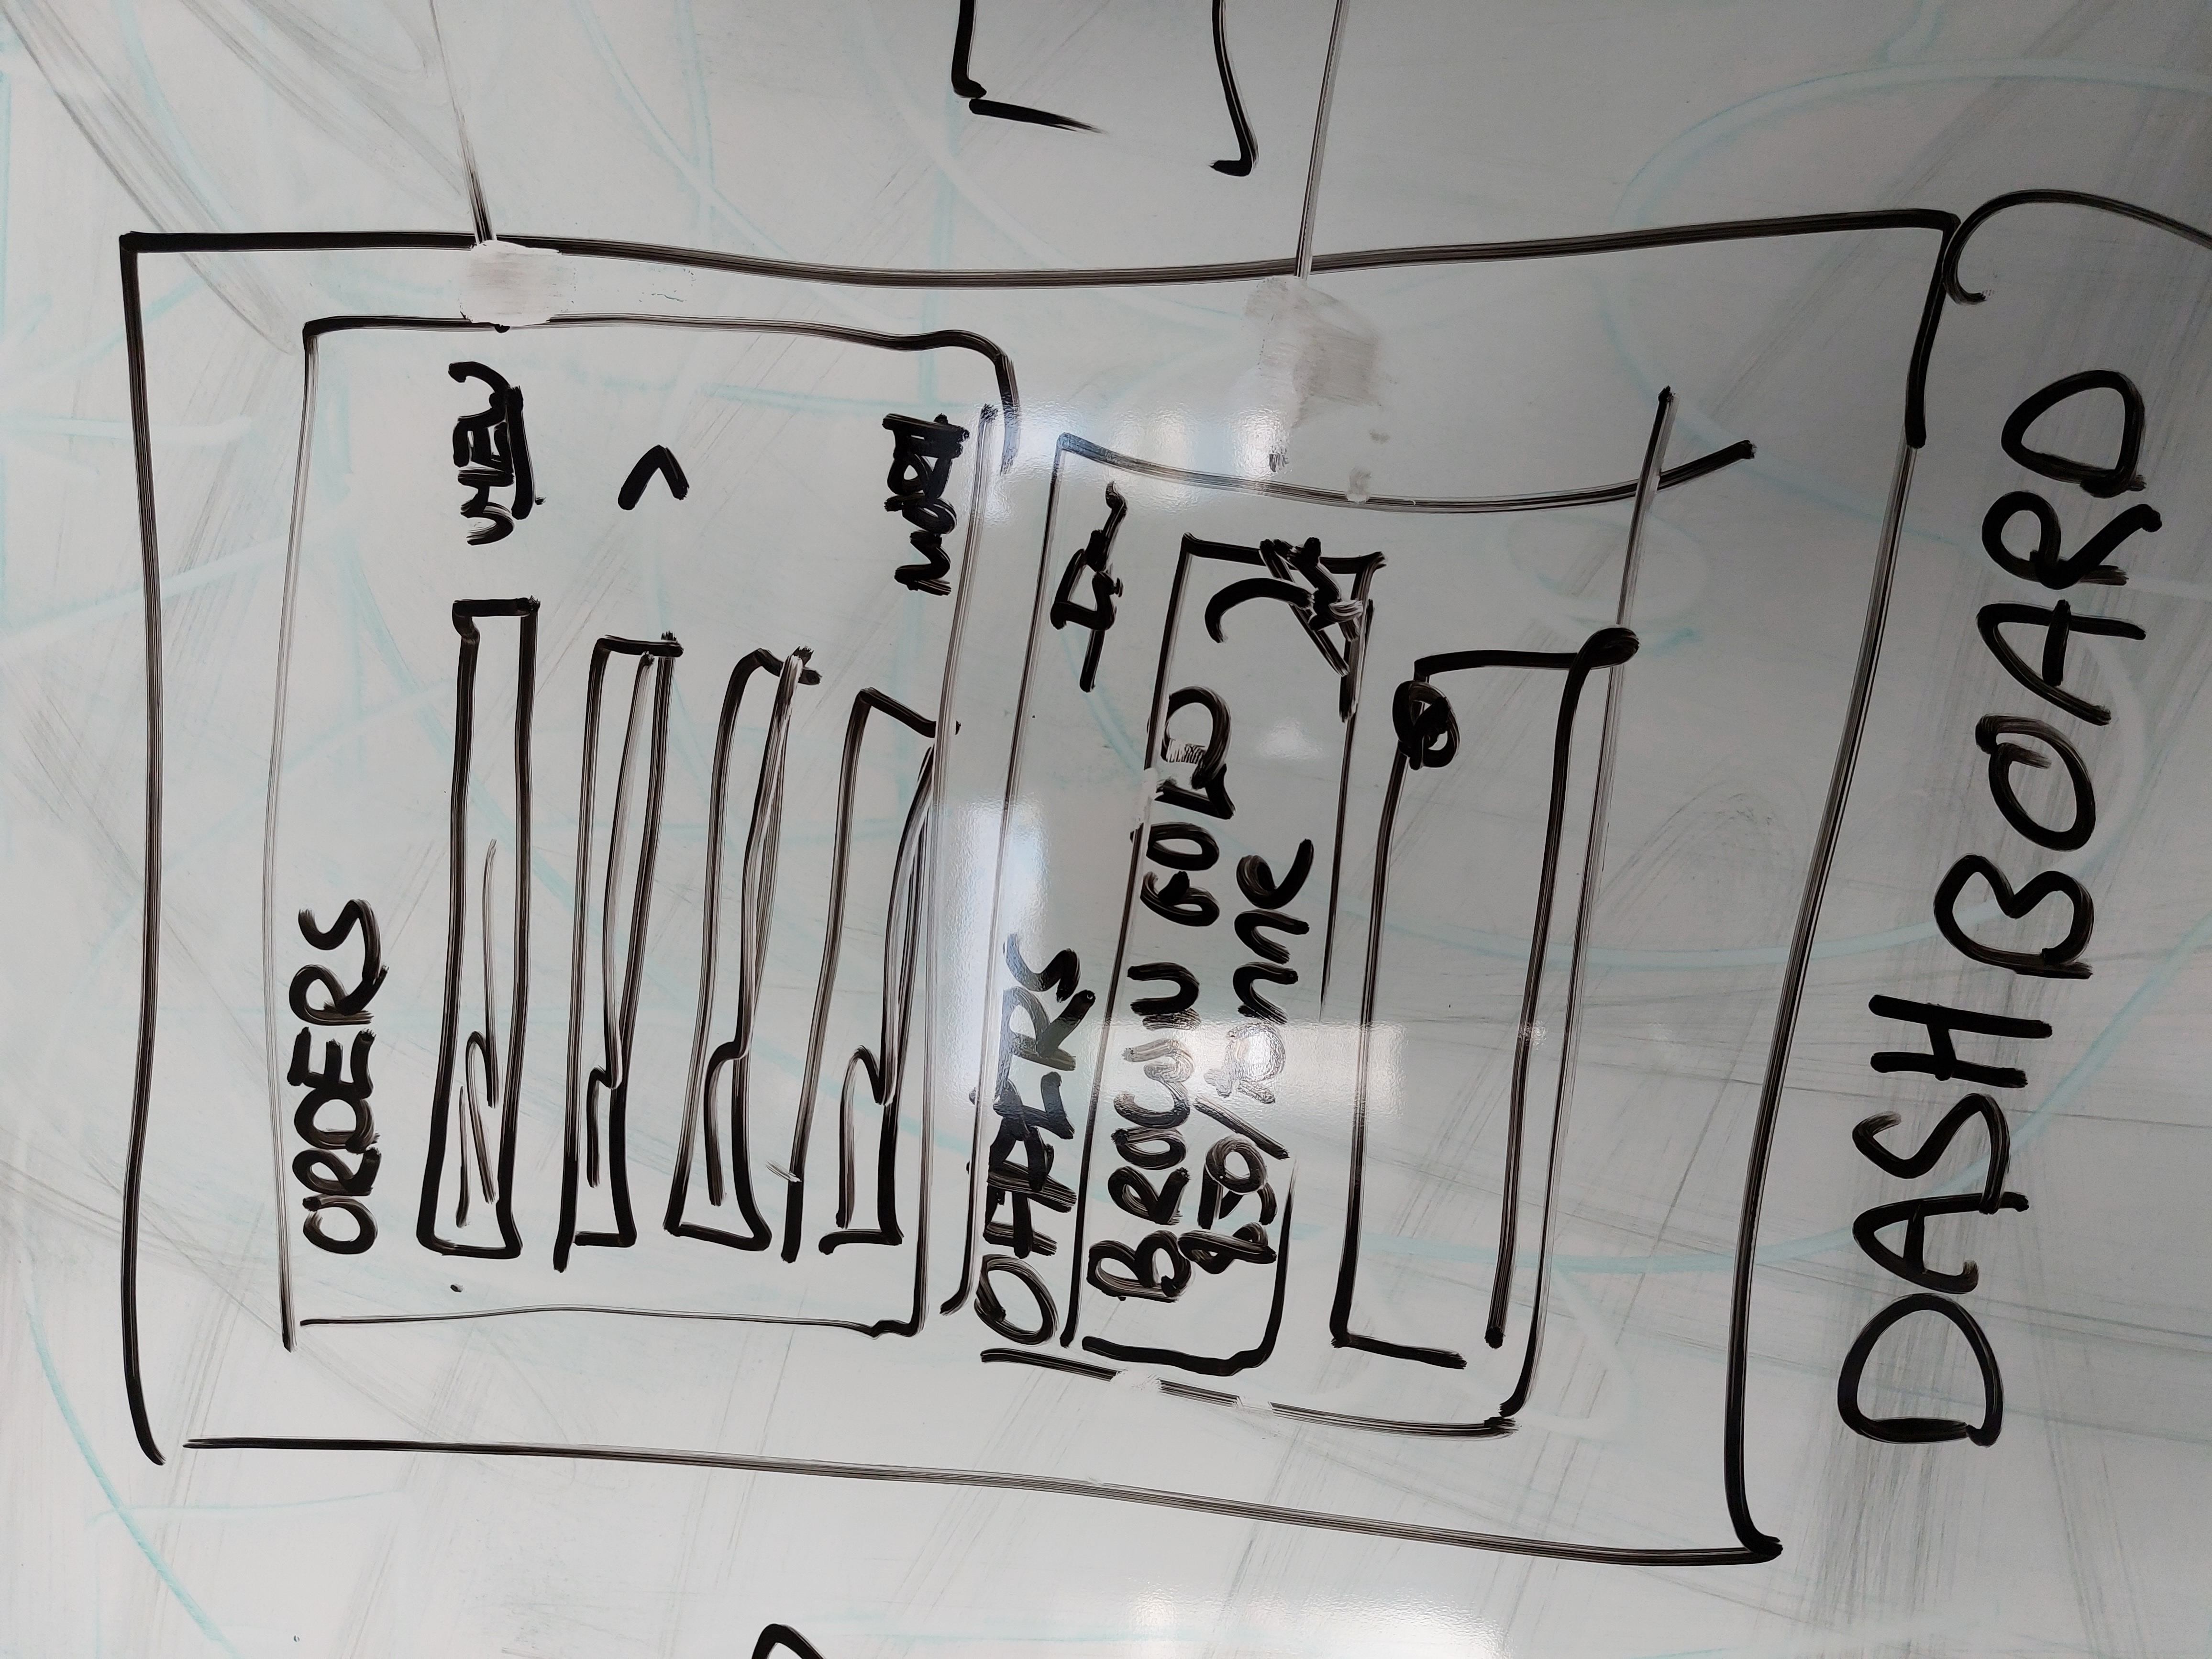 ORDERS
VIEW
>
MORE
OFFERS
BROWN GOLD
950/tonne
DASHBOARD